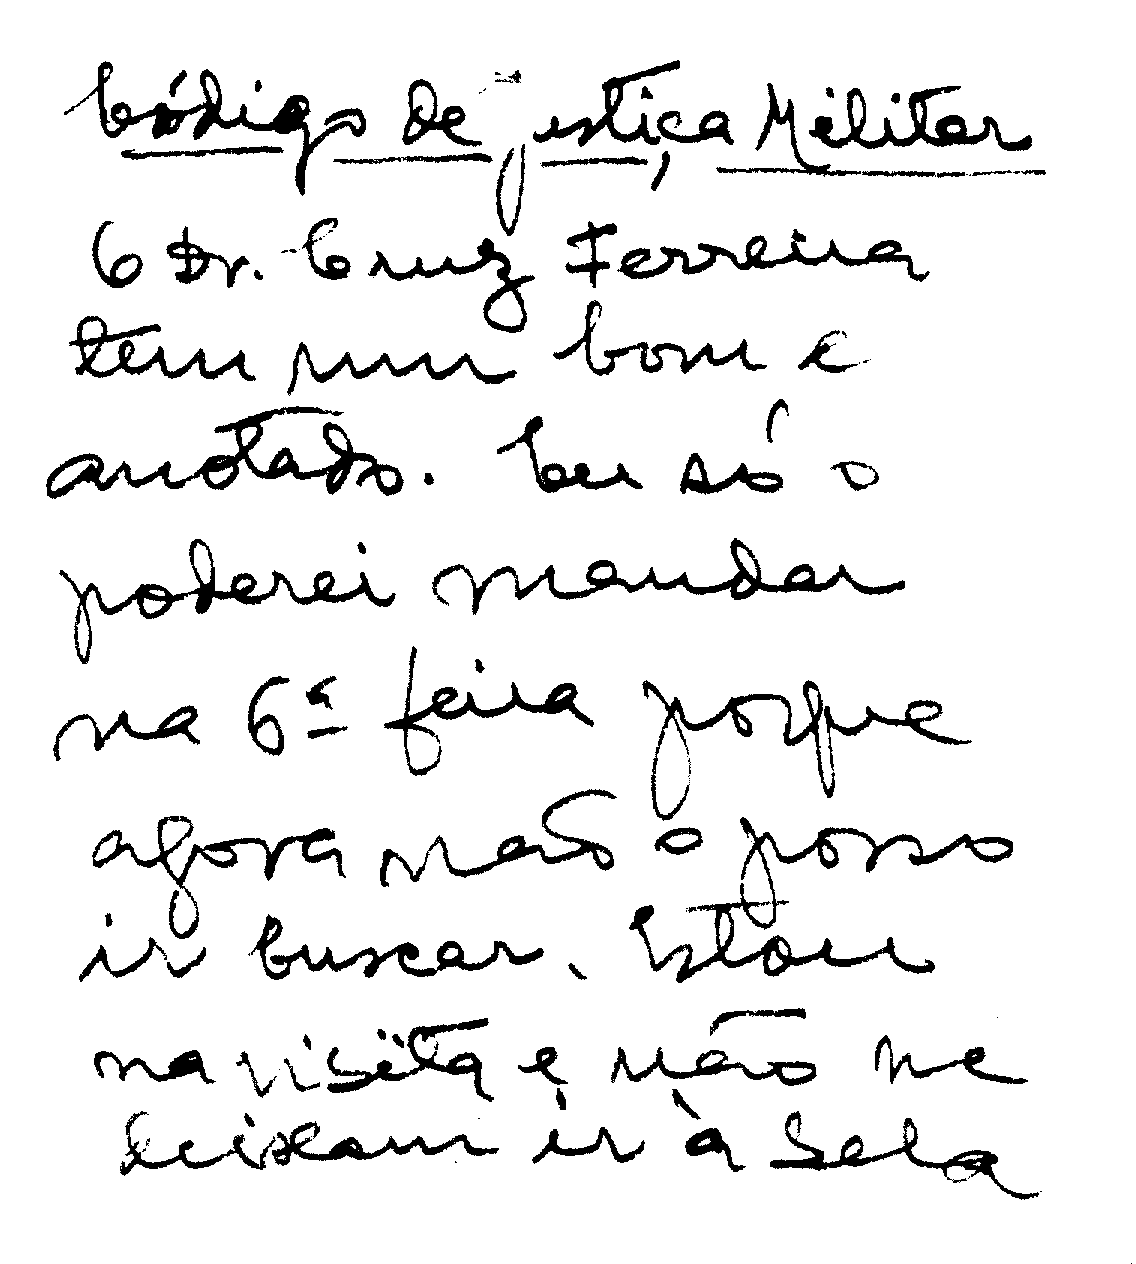 Código de justiça Militar
O Dr. Cruz Ferreira
tem um bom e
anotado. Eu só o
poderei mandar
na 6ª feira porque
agora não o posso
ir buscar. Estou
na visita e não me
deixam ir à Sela